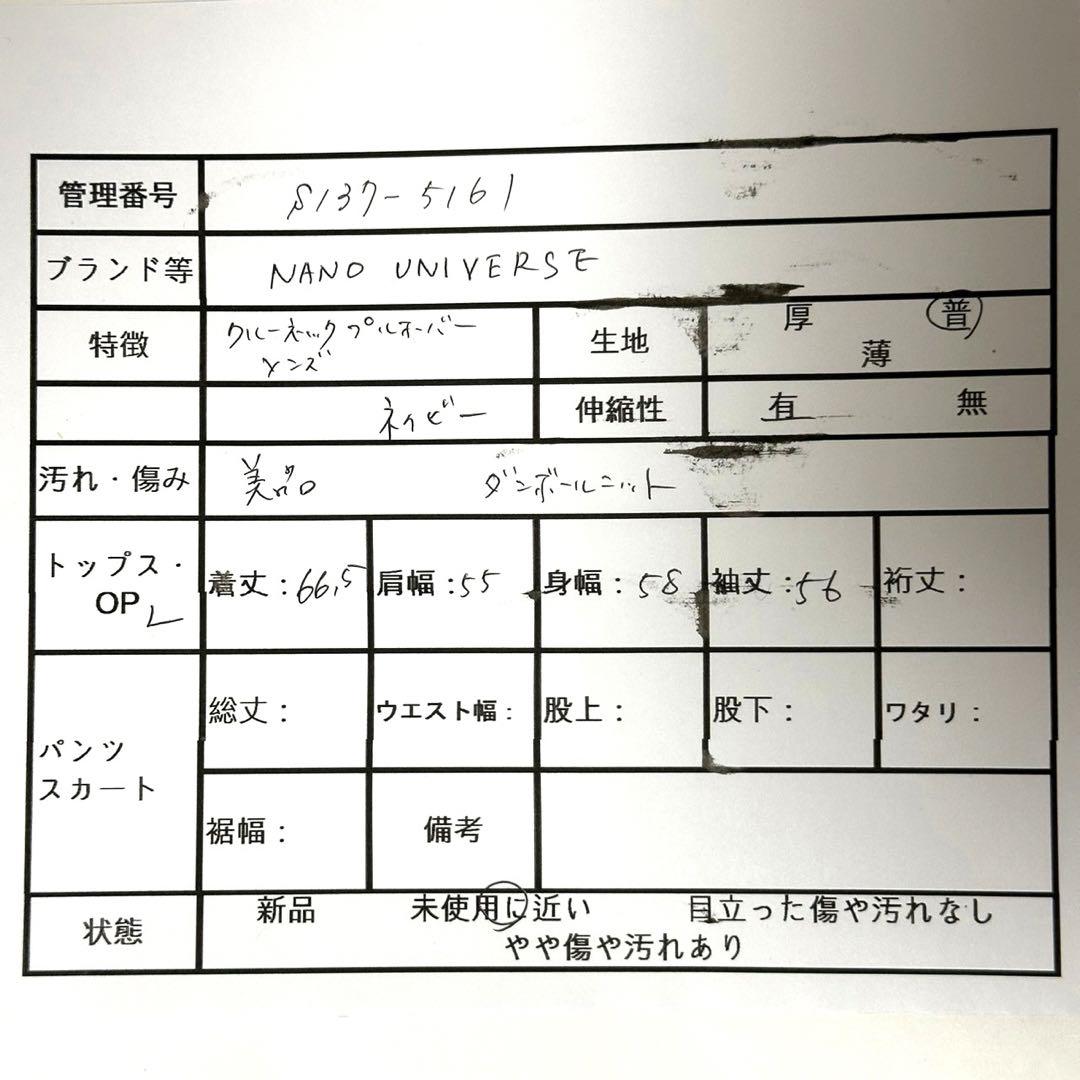 管理番号 S137-5161
ブランド等 NANO UNIVERSE
特徴 クルーネックプルオーバー
メンズ
生地 厚 普
薄
ネイビー 伸縮性 有 無
汚れ・傷み 美品。 ダンボールニット
トップス・
OP L
着丈:66.5 肩幅:55 身幅:58 袖丈:56 裄丈:
パンツ
スカート
総丈: ウエスト幅: 股上: 股下: ワタリ:
裾幅: 備考
状態 新品 未使用に近い 目立った傷や汚れなし
やや傷や汚れあり